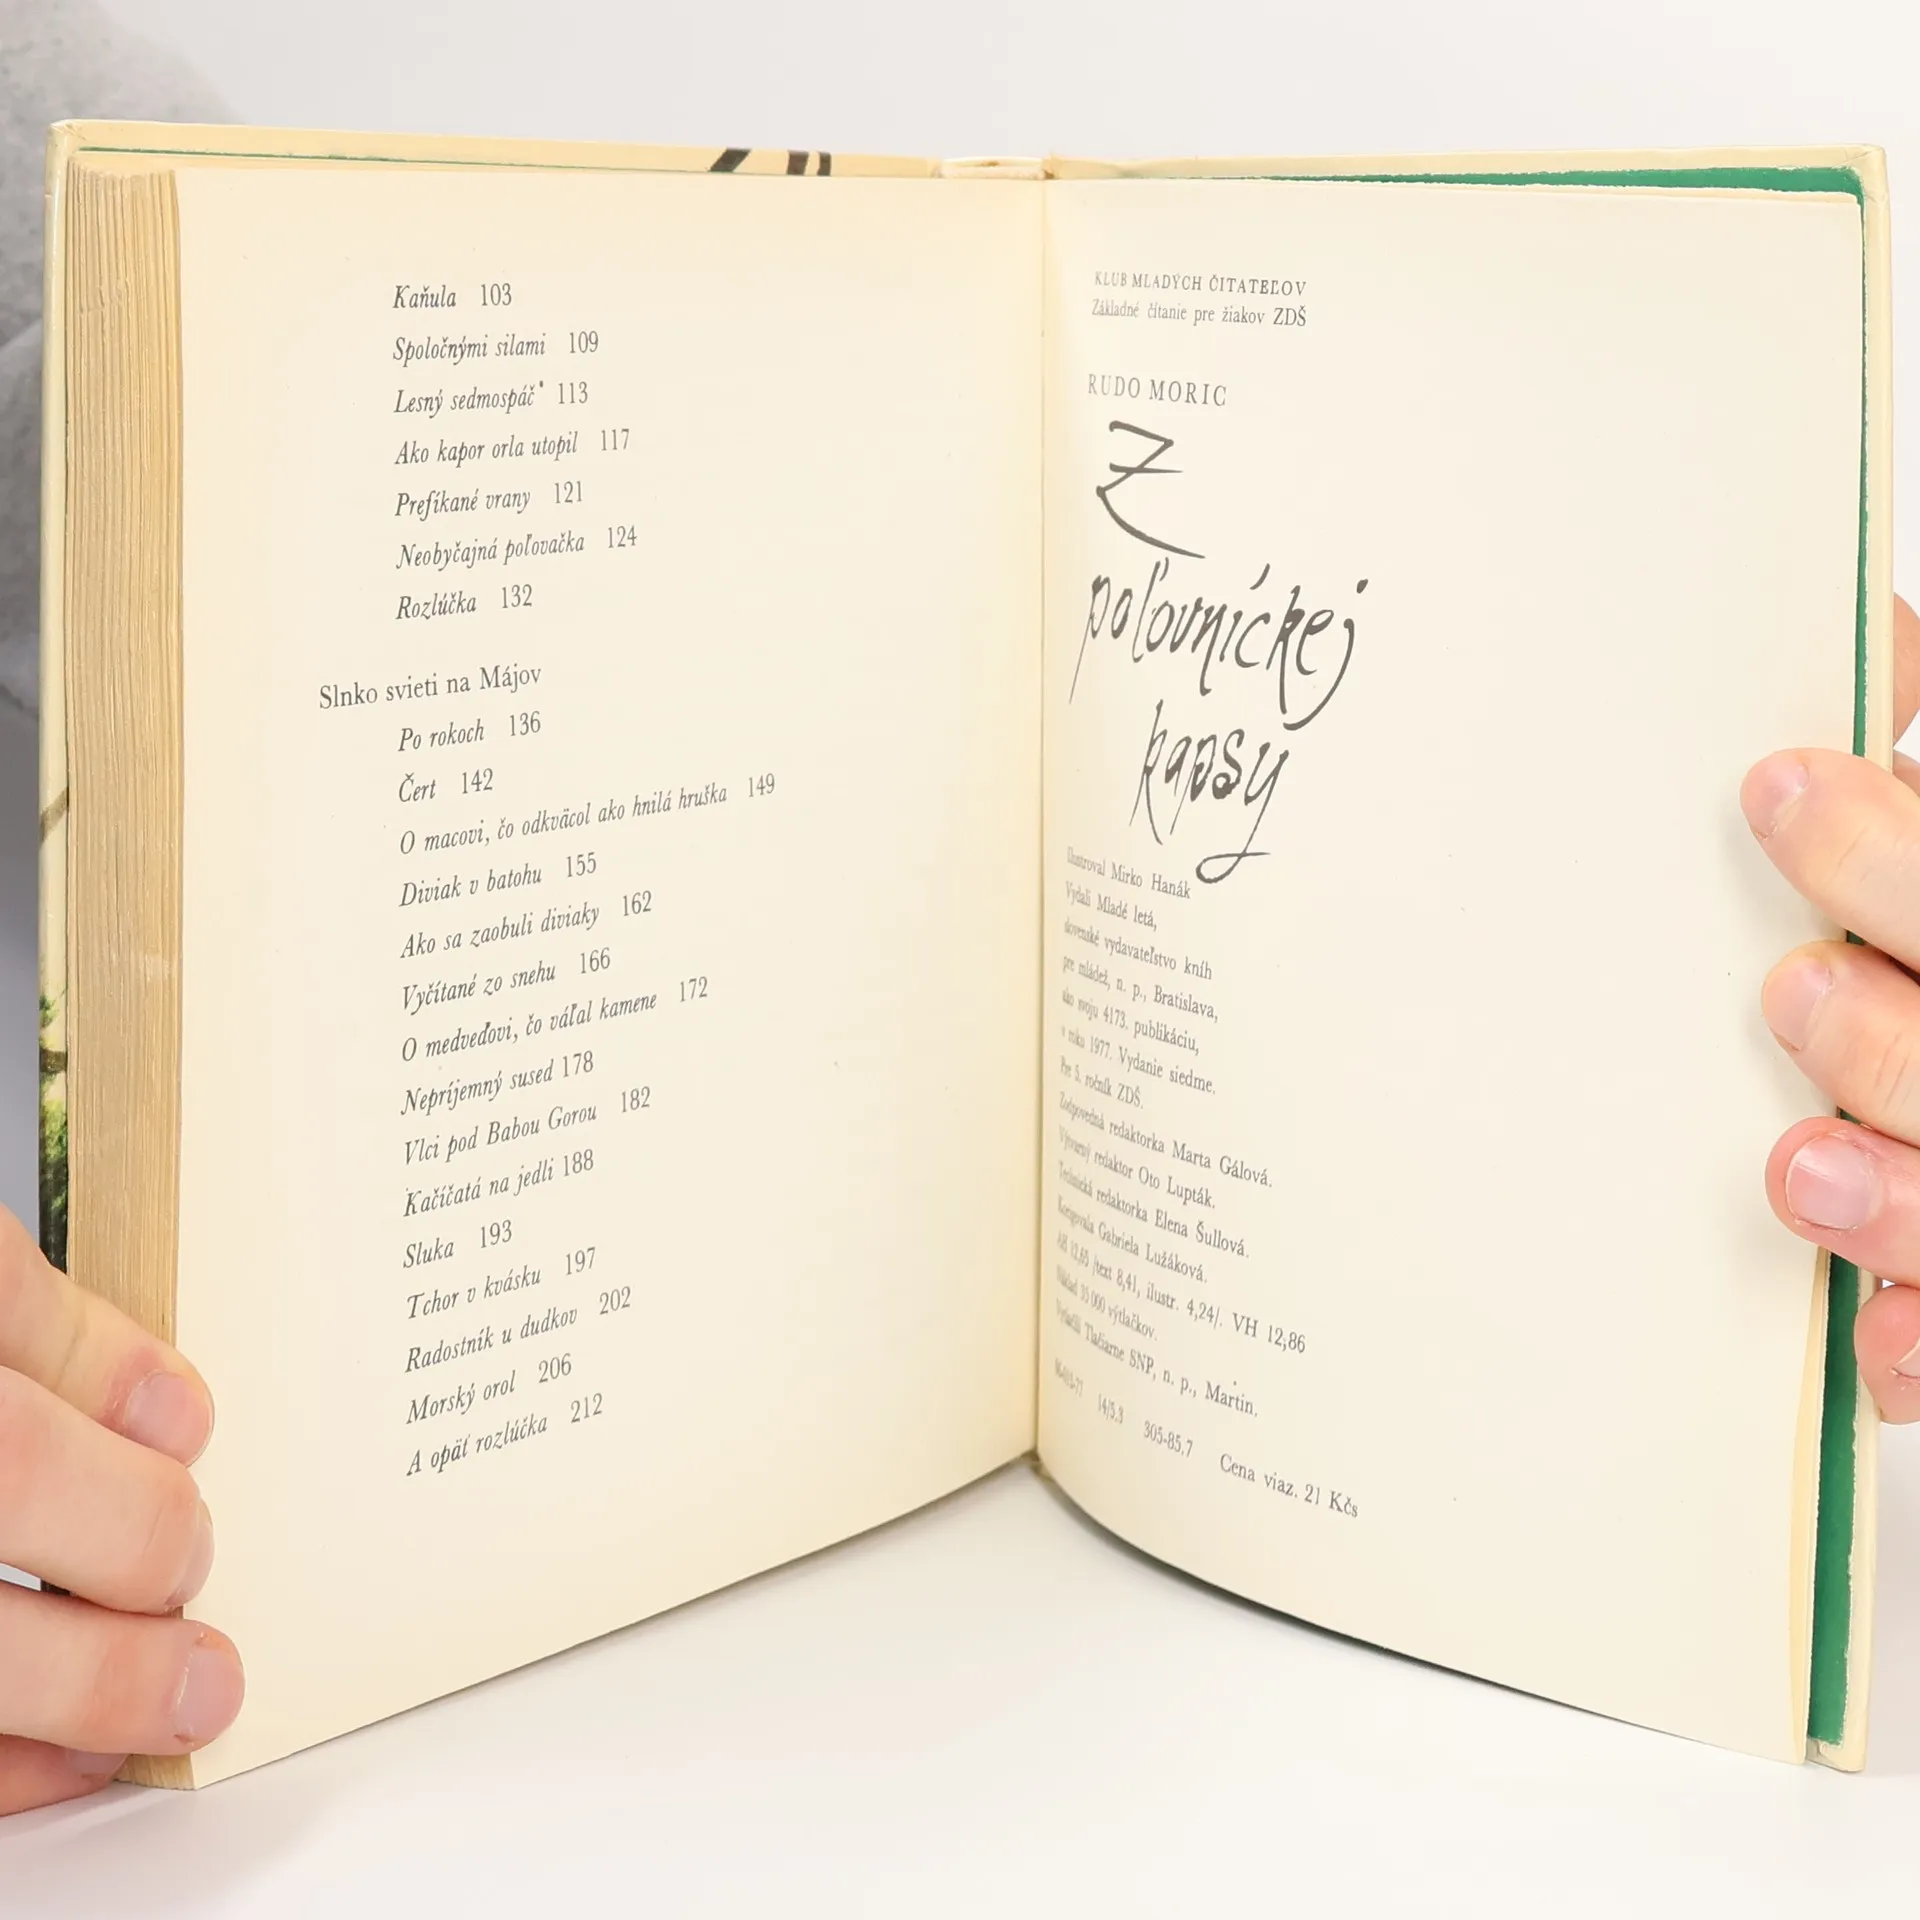 Kaňula 103
Spoločnými silami 109
Lesný sedmospáč 113
Ako kapor orla utopil 117
Prefíkané vrany 121
Neobyčajná poľovačka 124
Rozlúčka 132
Slnko svieti na Májov
Po rokoch 136
Čert 142
O macovi, čo odkväcol ako hnilá hruška 149
Diviak v batohu 155
Ako sa zaobuli diviaky 162
Vyčítané zo snehu 166
O medveďovi, čo váľal kamene 172
Nepríjemný sused 178
Vlci pod Babou Gorou 182
Kačíčatá na jedli 188
Sluka 193
Tchor v kvásku 197
Radostník u dudkov 202
Morský orol 206
A opäť rozlúčka 212
KLUB MLADÝCH ČITATEĽOV
Základné čítanie pre žiakov ZDŠ
RUDO MORIC
Z
poľovníckej
kapsy
Ilustroval Mirko Hanák
Vydali Mladé letá,
slovenské vydavateľstvo kníh
pre mládež, n. p., Bratislava,
ako svoju 4173. publikáciu,
v roku 1977. Vydanie siedme.
Pre 5. ročník ZDŠ.
Zodpovedná redaktorka Marta Gálová.
Výtvarný redaktor Oto Lupták.
Technická redaktorka Elena Šullová.
Korigovala Gabriela Lužáková.
AH 12,65 /text 8,41, ilustr. 4,24/. VH 12,86
Náklad 35 000 výtlačkov.
Vytlačili Tlačiarne SNP, n. p., Martin.
14/5.3 305-85.7 Cena viaz. 21 Kčs